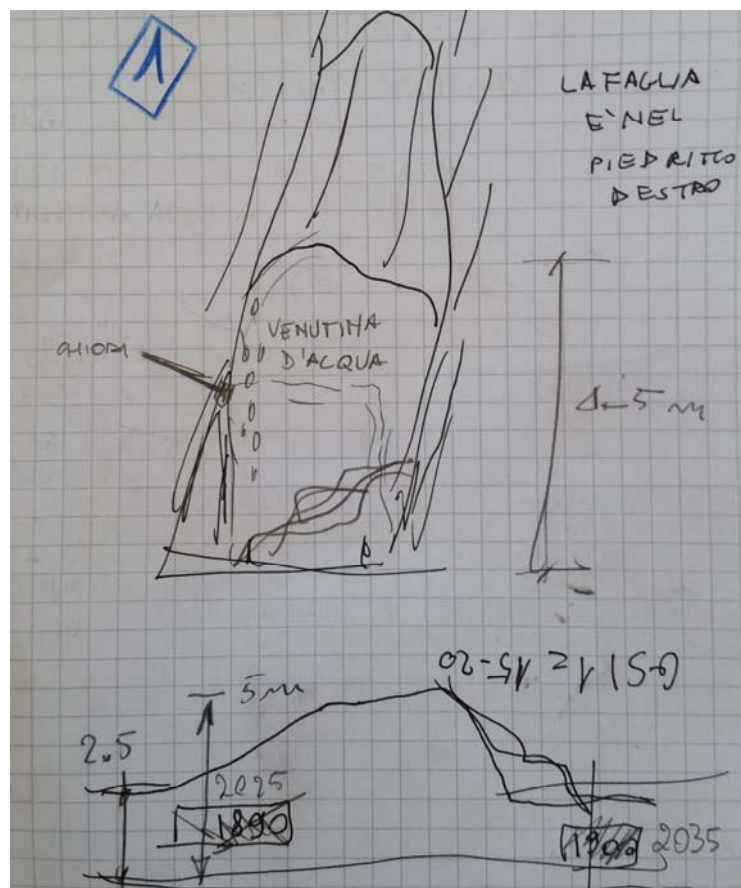 1
LA FAGLIA
E' NEL
PIEDRITTO
DESTRO
VENUTINA
D'ACQUA
CHIODI
4-5 m
GSI 12 15-20
5m
2.5
2025
1890
1900
2035